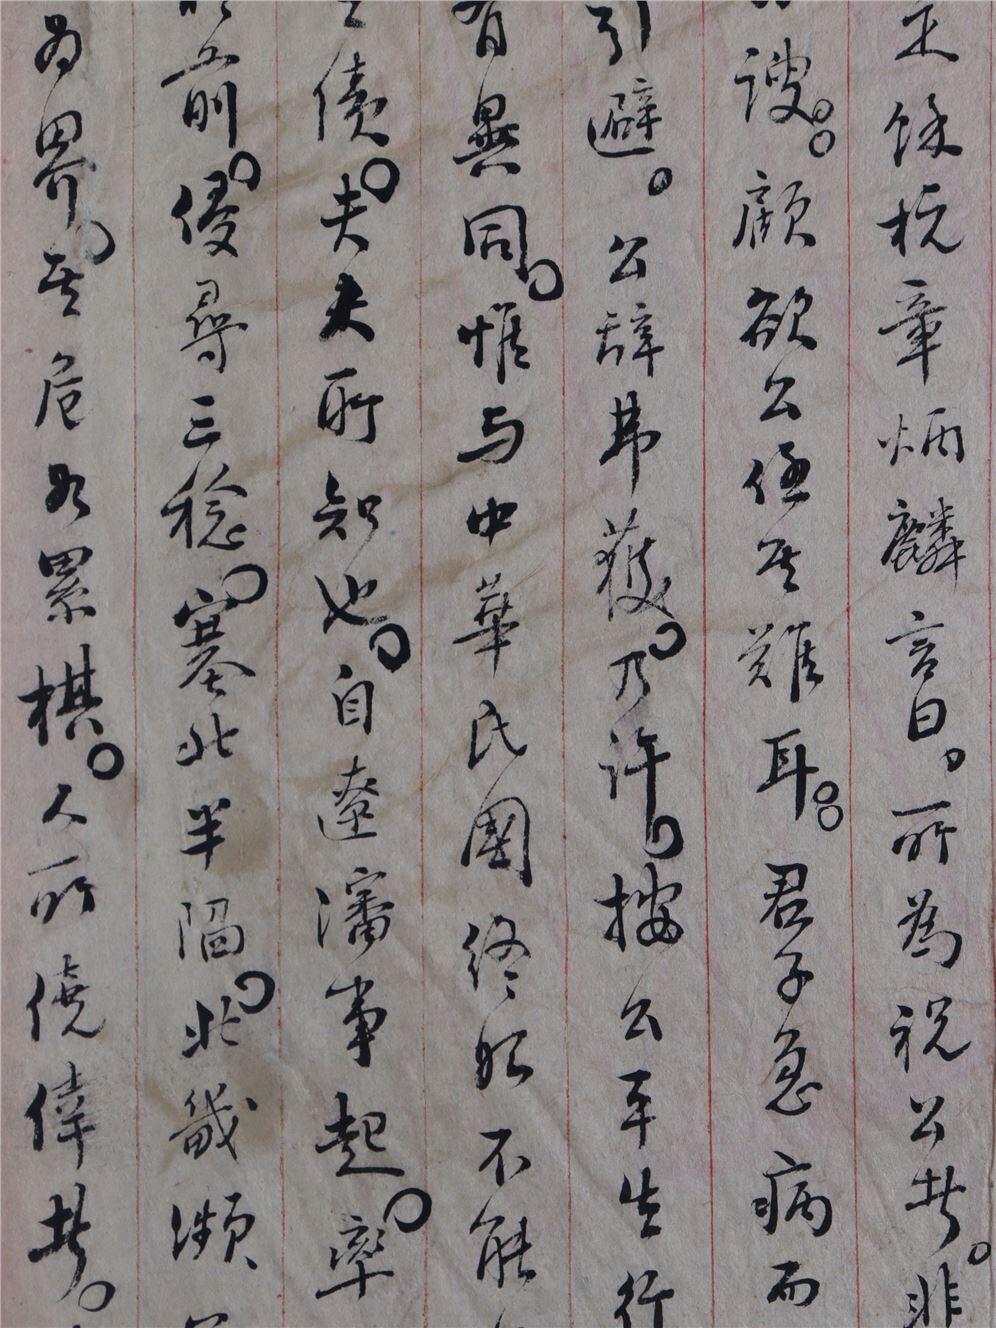 正餘杭章炳麟言曰。所為祝公者。非
謏。顧欲公任其難耳。君子急病而
引避。公辭弗獲。乃許。按公平生行
有異同。惟与中華民國終始不能
債。夫夫所知也。自遼瀋事起。率
前。侵尋三稔。塞北半陷。北畿瀕
為界。其危如累棋。人所僥倖者。